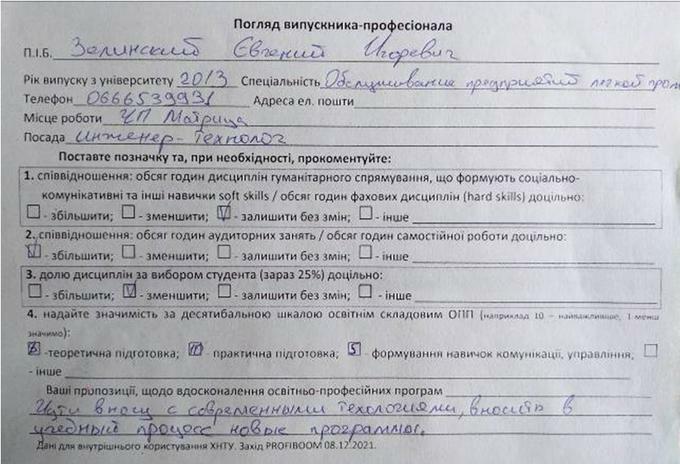 Погляд випускника-професіонала
П.І.Б. Зелинский Євгений Игоревич
Рік випуску з університету 2013 Спеціальність Обслуживание предприятий легкой пром
Телефон 0666539931 Адреса ел. пошти
Місце роботи ЧП Матрица
Посада инженер-технолог
Поставте позначку та, при необхідності, прокоментуйте:
1. співвідношення: обсяг годин дисциплін гуманітарного спрямування, що формують соціально-
комунікативні та інші навички soft skills / обсяг годин фахових дисциплін (hard skills) доцільно:
☐ - збільшити; ☐ - зменшити; ☑ - залишити без змін; ☐ - інше
2. співвідношення: обсяг годин аудиторних занять / обсяг годин самостійної роботи доцільно:
☑ - збільшити; ☐ - зменшити; ☐ - залишити без змін; ☐ - інше
3. долю дисциплін за вибором студента (зараз 25%) доцільно:
☐ - збільшити; ☑ - зменшити; ☐ - залишити без змін; ☐ - інше
4. надайте значимість за десятибальною шкалою освітнім складовим ОПП (наприклад 10 – найважливіше, 1 менш
значимо):
8 -теоретична підготовка; 10 - практична підготовка; 5 - формування навичок комунікації, управління; ☐
- інше
Ваші пропозиції, щодо вдосконалення освітньо-професійних програм
Идти в ногу с современными технологиями, вносить в
учебный процесс новые программы.
Дані для внутрішнього користування ХНТУ. Захід PROFIBOOM 08.12.2021.